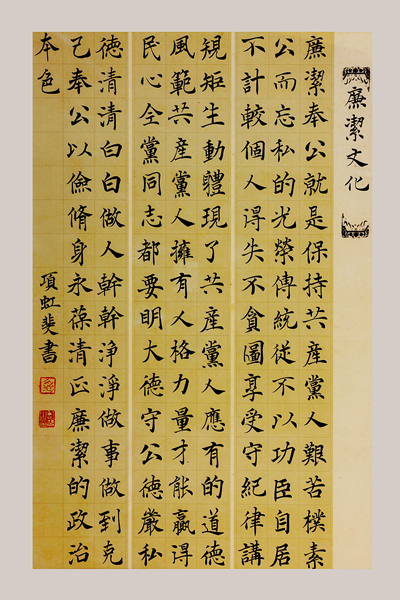 廉潔文化
廉潔奉公就是保持共産黨人艱苦樸素
公而忘私的光榮傳統從不以功臣自居
不計較個人得失不貪圖享受守紀律講
規矩生動體現了共産黨人應有的道德
風範共産黨人擁有人格力量才能贏得
民心全黨同志都要明大德守公德嚴私
德清清白白做人幹幹淨淨做事做到克
己奉公以儉脩身永葆清正廉潔的政治
本色
項虹斐書